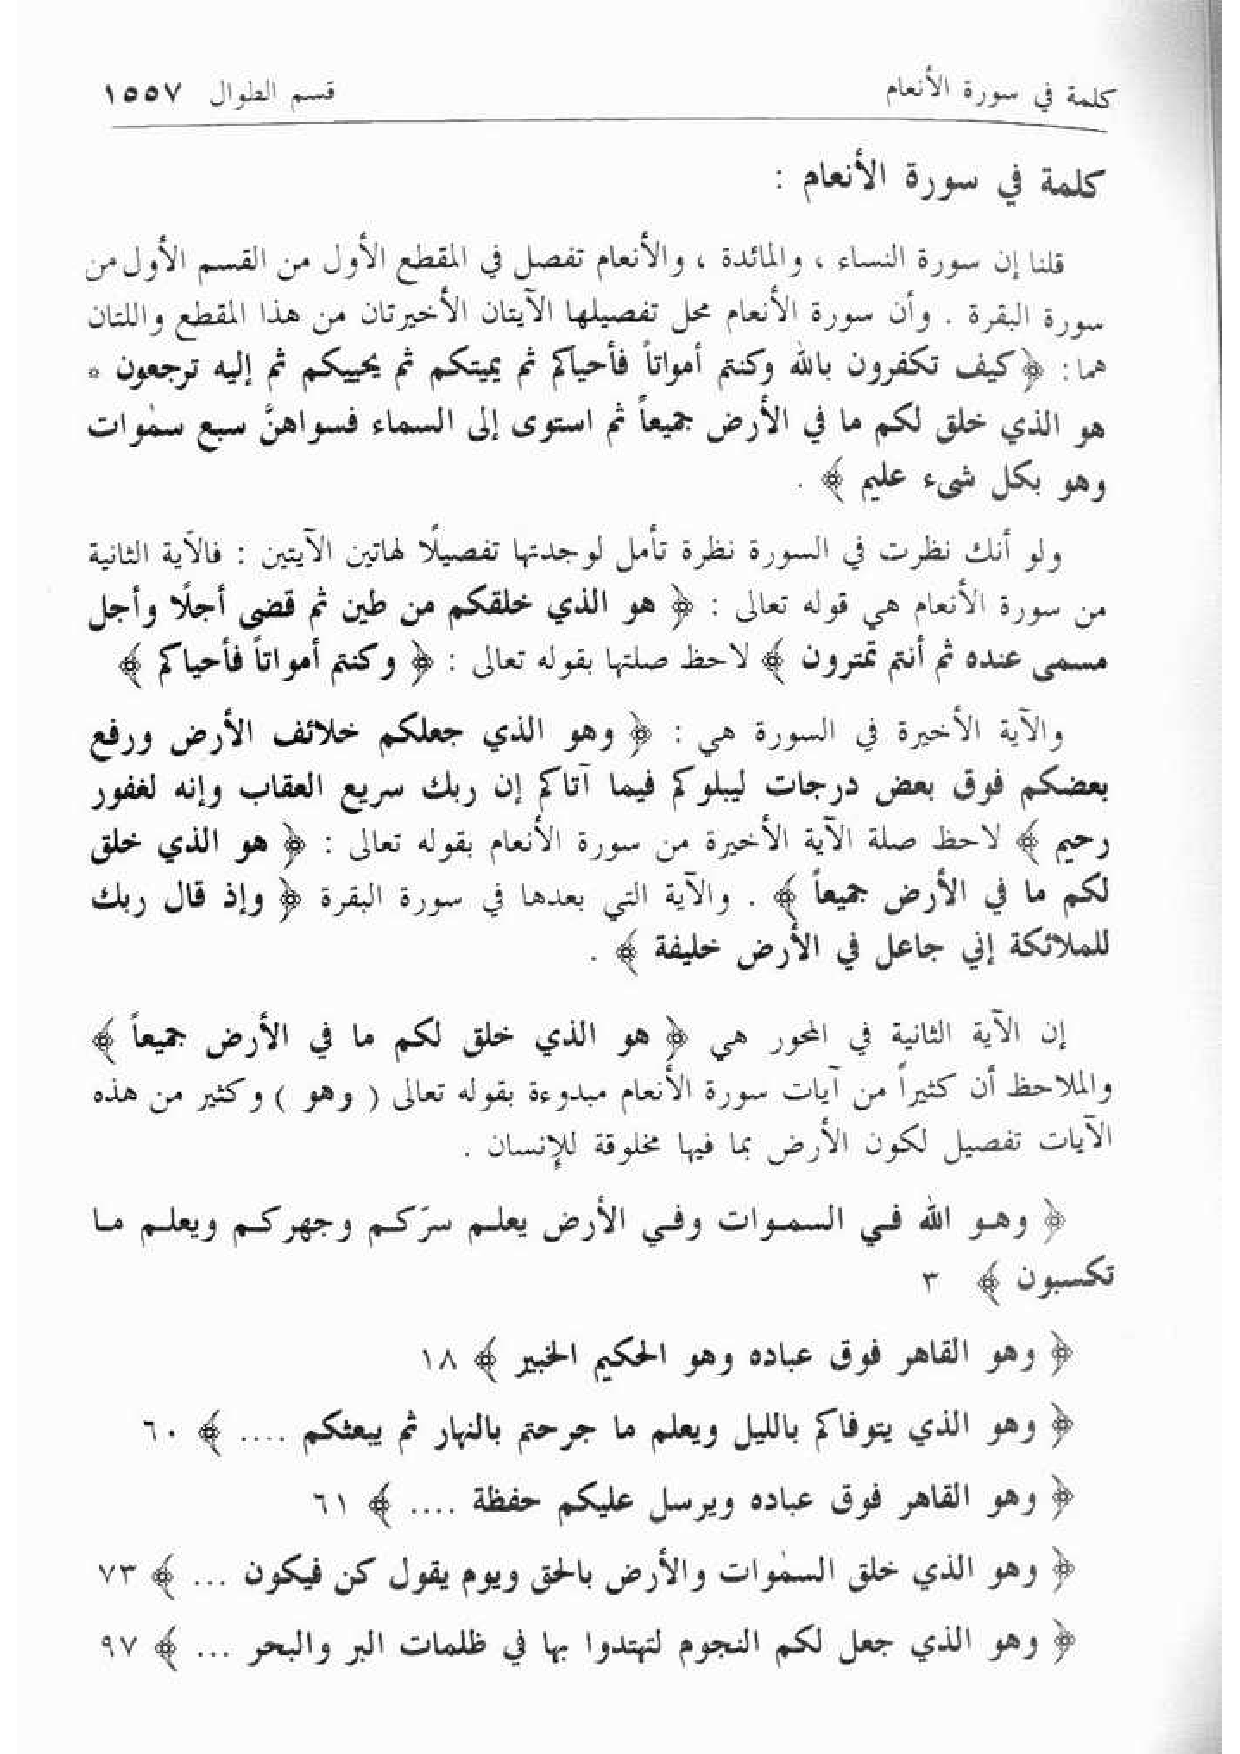 كلمة في سورة الأنعام
قسم الطوال ١٥٥٧
كلمة في سورة الأنعام :
قلنا إن سورة النساء ، والمائدة ، والأنعام تفصل في المقطع الأول من القسم الأول من
سورة البقرة . وأن سورة الأنعام محل تفصيلها الآيتان الأخيرتان من هذا المقطع واللتان
هما: ﴿ كيف تكفرون بالله وكنتم أمواتاً فأحياكم ثم يميتكم ثم يحييكم ثم إليه ترجعون *
هو الذي خلق لكم ما في الأرض جميعاً ثم استوى إلى السماء فسواهنَّ سبع سمٰوات
وهو بكل شىء عليم ﴾ .
ولو أنك نظرت في السورة نظرة تأمل لوجدتها تفصيلًا لهاتين الآيتين : فالآية الثانية
من سورة الأنعام هي قوله تعالى : ﴿ هو الذي خلقكم من طين ثم قضى أجلًا وأجل
مسمى عنده ثم أنتم تمترون ﴾ لاحظ صلتها بقوله تعالى : ﴿ وكنتم أمواتاً فأحياكم ﴾
والآية الأخيرة في السورة هي : ﴿ وهو الذي جعلكم خلائف الأرض ورفع
بعضكم فوق بعض درجات ليبلوكم فيما آتاكم إن ربك سريع العقاب وإنه لغفور
رحيم ﴾ لاحظ صلة الآية الأخيرة من سورة الأنعام بقوله تعالى : ﴿ هو الذي خلق
لكم ما في الأرض جميعاً ﴾ . والآية التي بعدها في سورة البقرة ﴿ وإذ قال ربك
للملائكة إني جاعل في الأرض خليفة ﴾ .
إن الآية الثانية في المحور هي ﴿ هو الذي خلق لكم ما في الأرض جميعاً ﴾
والملاحظ أن كثيراً من آيات سورة الأنعام مبدوءة بقوله تعالى ( وهو ) وكثير من هذه
الآيات تفصيل لكون الأرض بما فيها مخلوقة للإنسان .
﴿ وهو الله في السموات وفي الأرض يعلم سرّكم وجهركم ويعلم ما
تكسبون ﴾ ٣
﴿ وهو القاهر فوق عباده وهو الحكيم الخبير ﴾ ١٨
﴿ وهو الذي يتوفاكم بالليل ويعلم ما جرحتم بالنهار ثم يبعثكم .... ﴾ ٦٠
﴿ وهو القاهر فوق عباده ويرسل عليكم حفظة .... ﴾ ٦١
﴿ وهو الذي خلق السمٰوات والأرض بالحق ويوم يقول كن فيكون ... ﴾ ٧٣
﴿ وهو الذي جعل لكم النجوم لتهتدوا بها في ظلمات البر والبحر ... ﴾ ٩٧